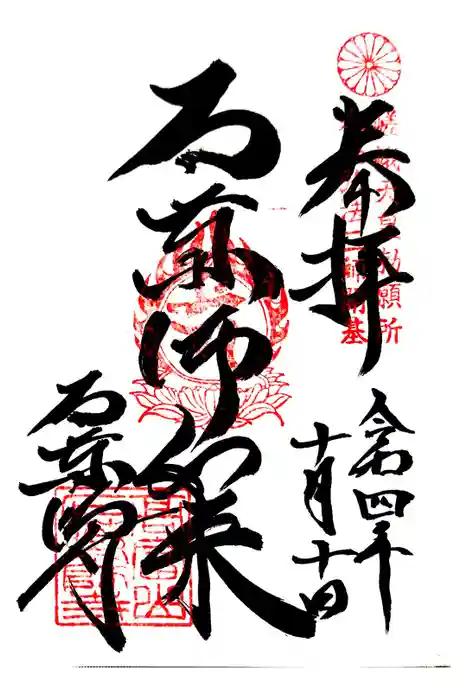 奉拝
嵯峨天皇勅願所
令和四年
十月十日
石薬師如来
石薬師寺